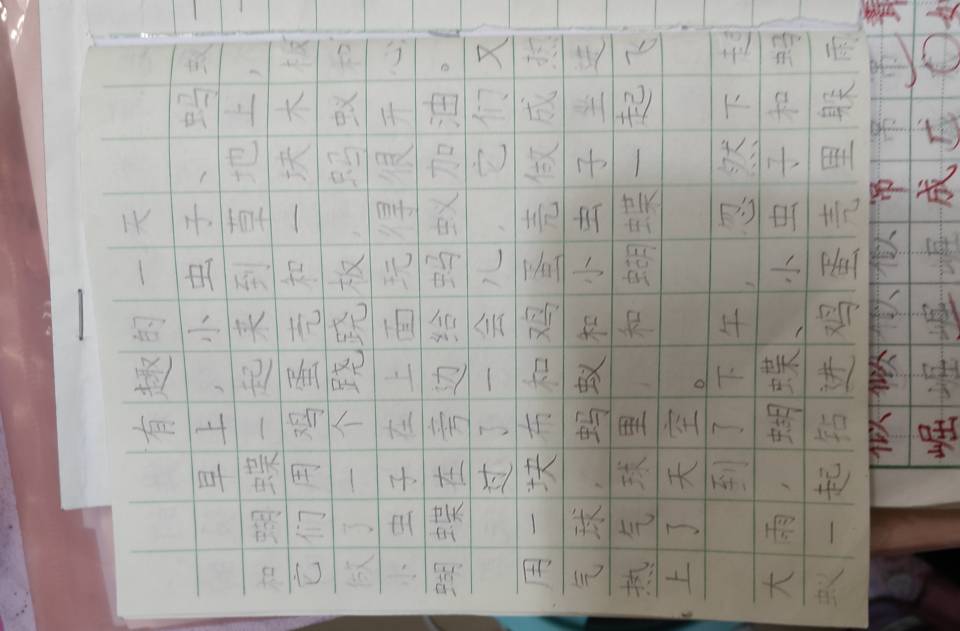 有趣的一天
早上，小虫子、蚂蚁
和蝴蝶一起来到草地上，
它们用鸡蛋壳和一块木板
做了一个跷跷板，蚂蚁和
小虫子在上面玩得很开心
蝴蝶在旁边给蚂蚁加油。
过了一会儿，它们又
用一块布和鸡蛋壳做成热
气球，蚂蚁和小虫子坐进
热气球里，和蝴蝶一起飞
上了天空。
到了下午，忽然下起
大雨，蝴蝶、小虫子和蚂
蚁一起钻进鸡蛋壳里躲雨